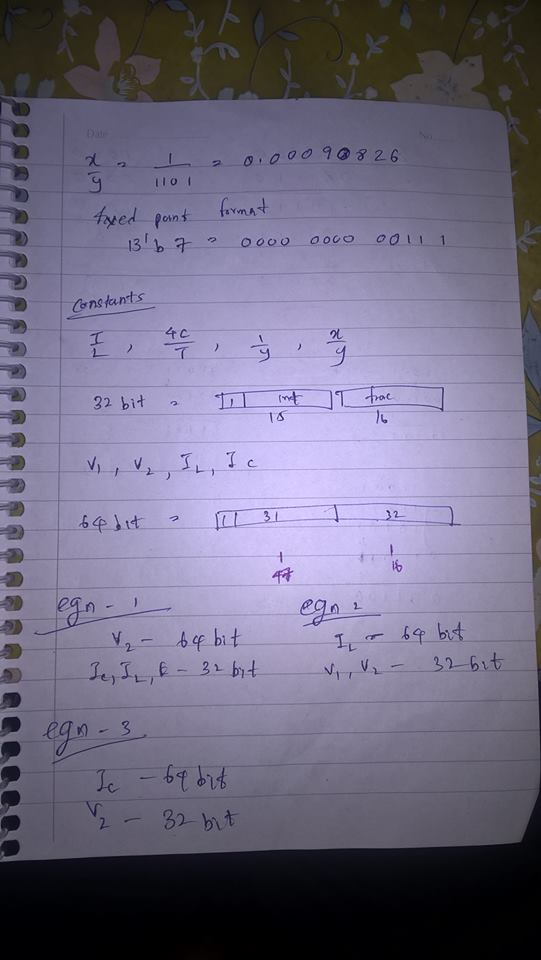 Date No.
x/y = 1/1101 = 0.00090826
fixed point format
13'b 7 = 0000 0000 00111
constants
I/L , 4C/T , 1/y , x/y
32 bit = 1 int frac
15 16
V1 , V2 , IL , Ic
64 bit = 1 31 32
1 1
47 16
eqn - 1 eqn 2
V2 - 64 bit IL = 64 bit
Ic, IL, E - 32 bit V1, V2 - 32 bit
eqn - 3
Ic - 64 bit
V2 - 32 bit